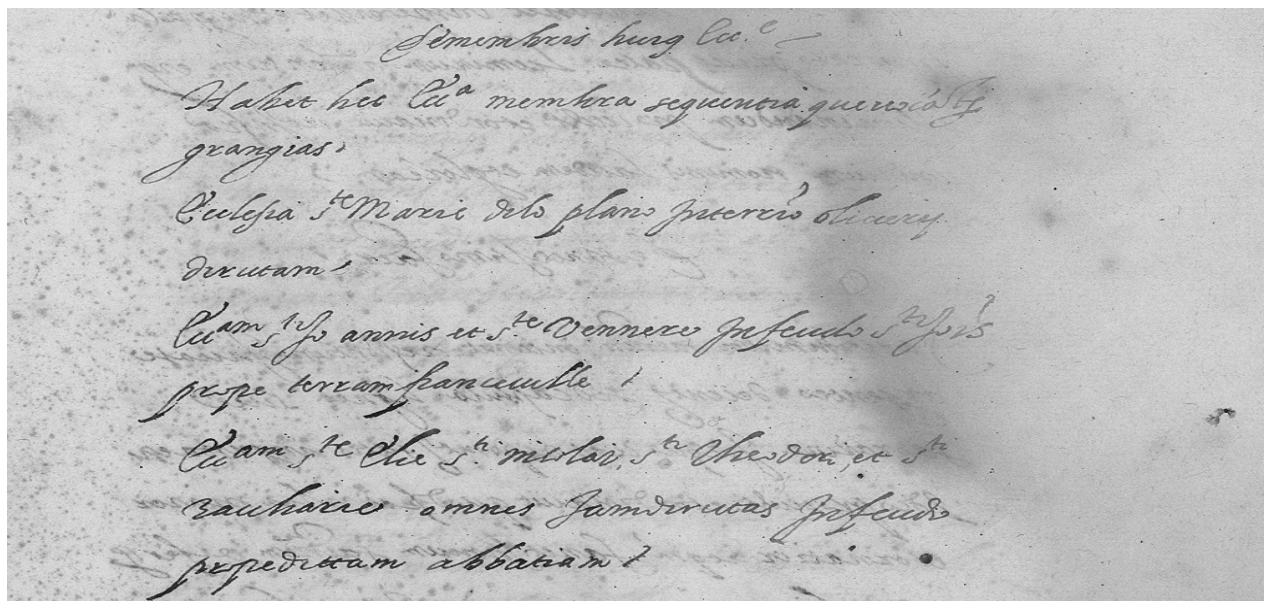 De membris huiq Ecc.e
Habet hec Ecca membra sequentia que vocāt
grangias.
Ecclesia ste Marie delo plano In terrio oliuery
dirutam.
Eccam sti Jo annis et ste Vennere In feudo sti Jois
prope terram francauille
Eccam ste Elie sti nicolai, sti Theodori, et sti
Zaccharie omnes Jam dirutas In feudo
prope dittam abbatiam